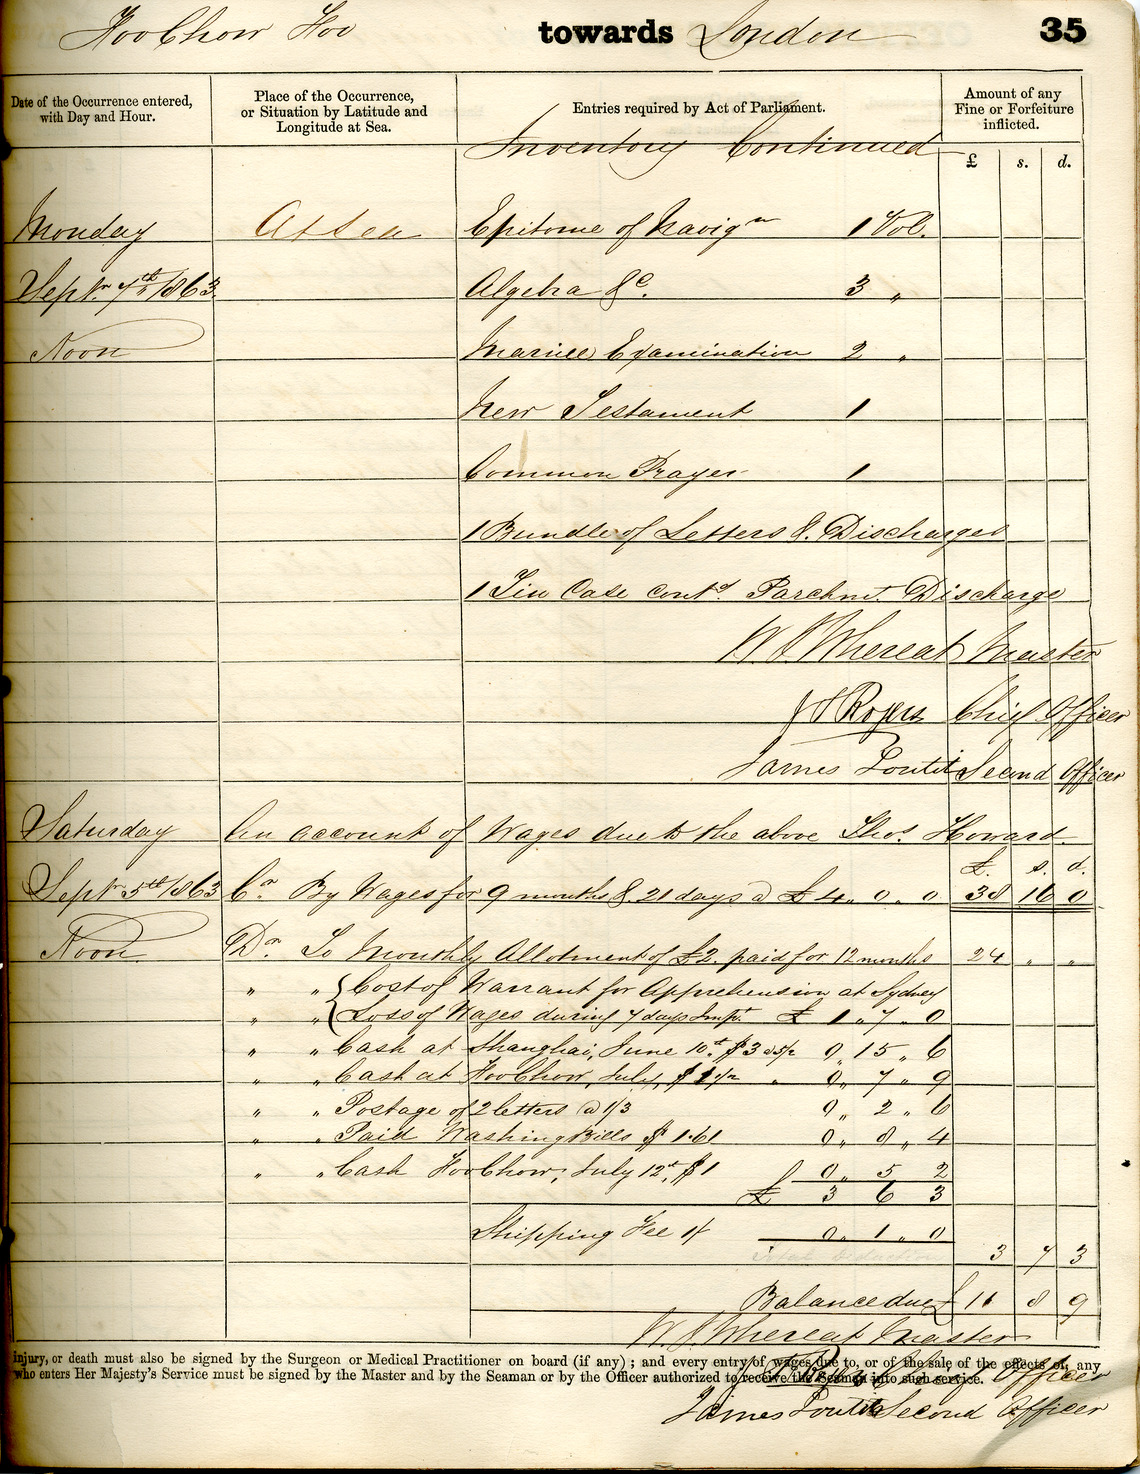 Foo Chow Foo towards London 35
Date of the Occurrence entered, with Day and Hour.
Place of the Occurrence, or Situation by Latitude and Longitude at Sea.
Entries required by Act of Parliament.
Amount of any Fine or Forfeiture inflicted.
£ s. d.
Inventory Continued
Monday At Sea Epitome of Navign 1 Vol.
Septr 7th/1863. Algebra &c. 3 "
Noon Marine Examination 2 "
New Testament 1
Common Prayer 1
1 Bundle of Letters & Discharges
1 Tin Case contd. Parchmt. Discharge
W. J. Whereat Master
J S Rogers Chief Officer
James Loutit Second Officer
Saturday An account of Wages due to the above Thos. Howard.
£. s. d.
Septr 5th/1863 Cr. By Wages for 9 months & 21 days @ £4 " 0 " 0 38 16 0
Noon Dr. To Monthly Allotment of £2. paid for 12 months 24 " "
" " Cost of Warrant for Apprehension at Sydney
" " Loss of Wages during 7 days Impt. £ 1 " 7 " 0
" " Cash at Shanghai, June 10th. $3 @ 5/2 0 " 15 " 6
" " Cash at Foo Chow, July, $1 1/2 " 0 " 7 " 9
" " Postage of 2 letters @ 1/3 0 " 2 " 6
" " Paid Washing Bills $1.61 0 " 8 " 4
" " Cash Foo Chow, July 12th, $1 0 " 5 2
£ 3 6 3
Shipping Fee 1/ 0 " 1 " 0
3 7 3
Balance due £ 11 8 9
W. J. Whereat Master
injury, or death must also be signed by the Surgeon or Medical Practitioner on board (if any) ; and every entry of wages due to, or of the sale of the effects of, any
who enters Her Majesty's Service must be signed by the Master and by the Seaman or by the Officer authorized to receive the Seaman into such service.
J S Rogers Chief Officer
James Loutit Second Officer